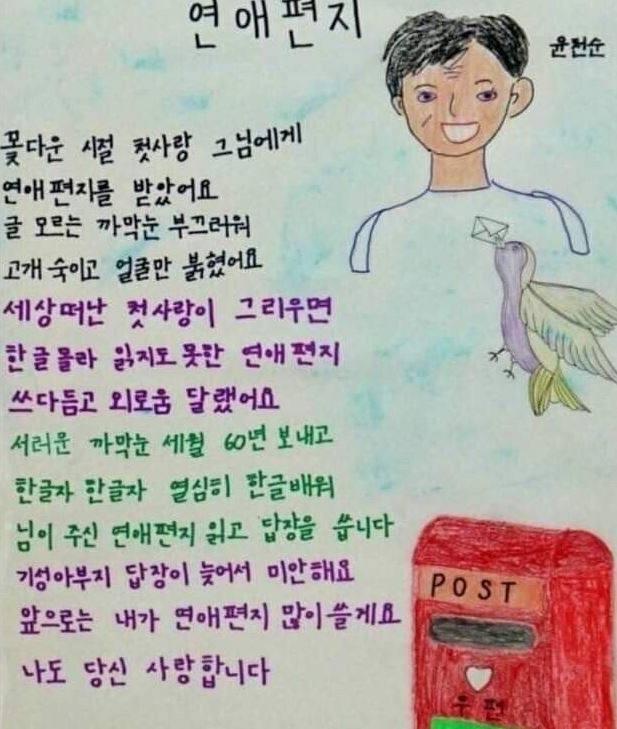 연애편지
윤천순
꽃다운 시절 첫사랑 그님에게
연애편지를 받았어요
글 모르는 까막눈 부끄러워
고개 숙이고 얼굴만 붉혔어요
세상떠난 첫사랑이 그리우면
한글몰라 읽지도못한 연애편지
쓰다듬고 외로움 달랬어요
서러운 까막눈 세월 60년 보내고
한글자 한글자 열심히 한글배워
님이 주신 연애편지 읽고 답장을 씁니다
기성아부지 답장이 늦어서 미안해요
앞으로는 내가 연애편지 많이쓸게요
나도 당신 사랑합니다
POST
우편